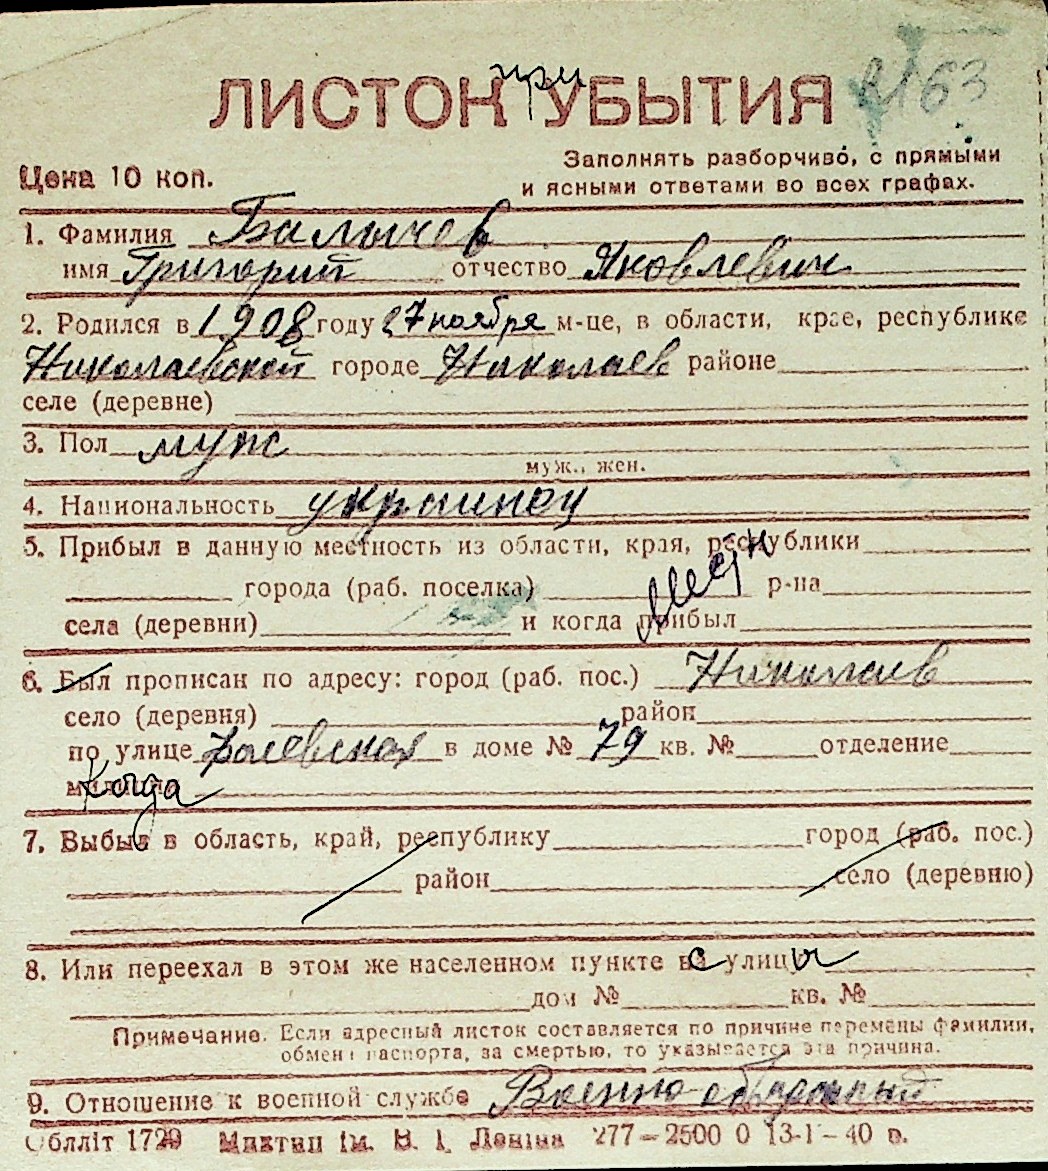 при
ЛИСТОК УБЫТИЯ 163
Заполнять разборчиво, с прямыми
Цена 10 коп. и ясными ответами во всех графах.
1. Фамилия Балычев
имя Григорий отчество Яковлевич
2. Родился в 1908 году 27 ноября м-це, в области, крае, республике
Николаевской городе Николаев районе
селе (деревне)
3. Пол муж
муж., жен.
4. Национальность украинец
5. Прибыл в данную местность из области, края, республики
города (раб. поселка) местн р-на
села (деревни) и когда прибыл
6. Был прописан по адресу: город (раб. пос.) Николаев
село (деревня) район
по улице в доме № 79 кв. № отделение
милиции Когда
7. Выбыл в область, край, республику город (раб. пос.)
район село (деревню)
8. Или переехал в этом же населенном пункте с улицы
дом № кв. №
Примечание. Если адресный листок составляется по причине перемены фамилии,
обмена паспорта, за смертью, то указывается эта причина.
9. Отношение к военной службе Военно-обязанный
Облліт 1729 Миктип ім. В. І. Леніна 277—2500 0 13-1—40 р.